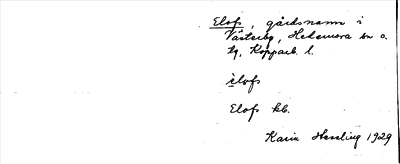 Elofs, gårdsnamn i
Västerby, Hedemora sn o.
tg, Kopparb. l.
èlofs
Elofs kb.
Karin Hessling 1929